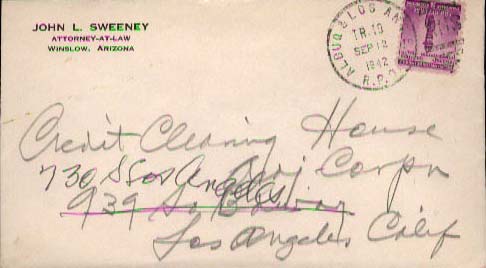 JOHN L. SWEENEY
ATTORNEY-AT-LAW
WINSLOW, ARIZONA
ALBUQ & LOS AN
TR.19
SEP 12
1942
R.P.O.
Credit Clearing House
Adj Corpn
730 S Los Angeles
939 So
Los Angeles Calif